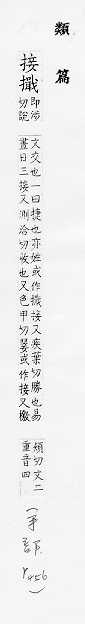 類篇
接擑
即涉
切説
文交也一曰捷也亦姓或作擑接又疾葉切勝也易
晝日三接又測洽切收也又色甲切翣或作接又檄
頰切文二
重音四
(手部 P.456)